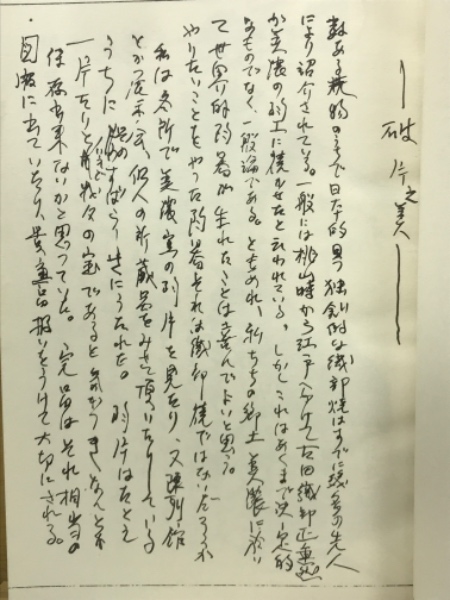 破片之美
数ある焼物のうちで日本的且つ独創的な織部焼はすでに幾多の先人
により紹介されている。一般には桃山時から江戸へかけて古田織部正重然
が美濃の陶工に焼かせたと云われている。しかしこれはあくまで決定的
なものでなく、一般論である。ともあれ、私たちの郷土美濃に於い
て世界的陶器が生れたことは喜んでよいと思う。
やりたいことをやった陶器それは織部焼ではないだろうか
私は各所で美濃窯の陶片を見たり、又陳列館
とか展示会、個人の所蔵品をみせて頂いたりしている
うちに そのすばらしさにうたれた。陶片はたとえ
一片たりと いえども 我々の宝であると気がつき なんとか
保存出来ないかと思っていた。完品はそれ相当の
図版に出ていたり、貴重品扱いをうけて大切にされる。